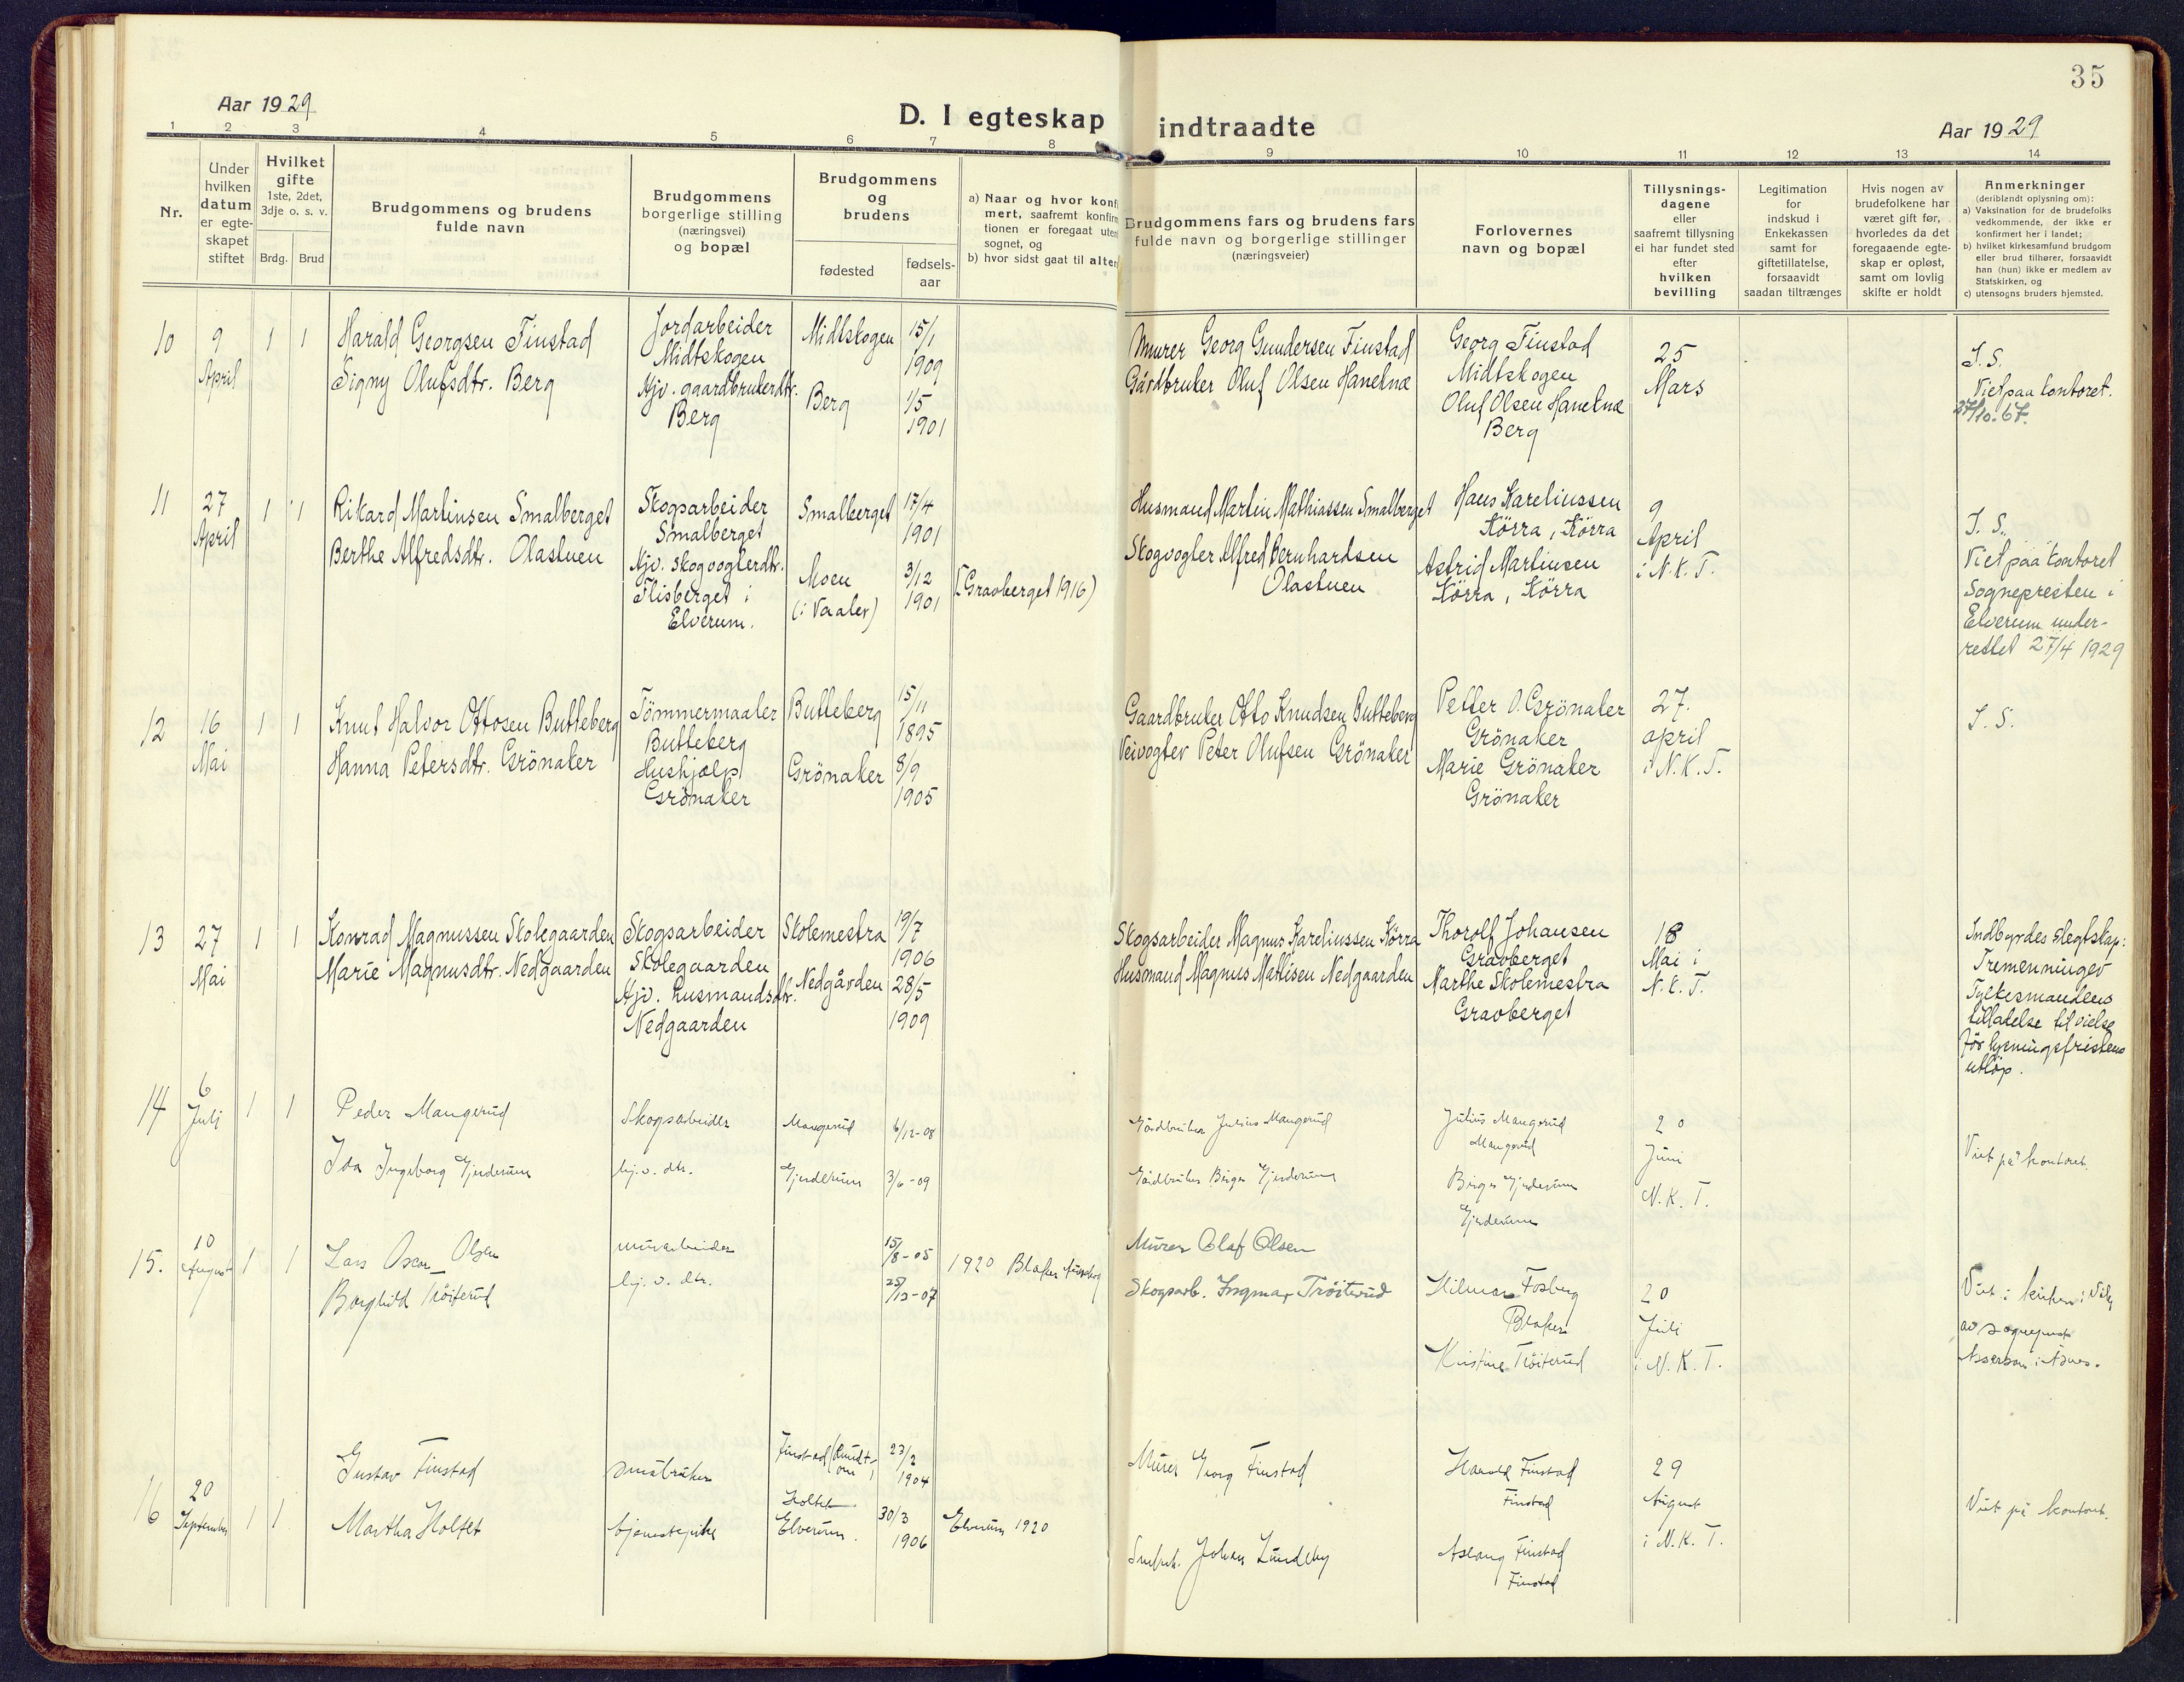 35
Aar 1929
D. I egteskap indtraadte
Aar 1929
1 2 3 4 5 6 7 8 9 10 11 12 13 14
Nr.
Under hvilken datum er egte-skapet stiftet
Hvilket gifte 1ste, 2det, 3dje o. s. v.
Brdg. Brud
Brudgommens og brudens fulde navn
Brudgommens borgerlige stilling (næringsvei) og bopæl
Brudgommens og brudens
fødested
fødsels-aar
a) Naar og hvor konfi
mert, saafremt konfirm
tionen er foregaat uten
sognet, og
b) hvor sidst gaat til alter
Brudgommens fars og brudens fars fulde navn og borgerlige stillinger (næringsveier)
Forlovernes navn og bopæl
Tillysnings-dagene eller saafremt tillysning ei har fundet sted efter hvilken bevilling
Legitimation for indskud i Enkekassen samt for giftetillatelse, forsaavidt saadan tiltrænges
Hvis nogen av brudefolkene har været gift før, hvorledes da det foregaaende egte-skap er opløst, samt om lovlig skifte er holdt
Anmerkninger
(deriblandt oplysning om):
a) Vaksination for de brudefolks vedkommende, der ikke er konfirmert her i landet;
b) hvilket kirkesamfund brudgom eller brud tilhører, forsaavidt han (hun) ikke er medlem av Statskirken, og
c) utensogns bruders hjemsted.
10
9 April
1 1
Harald Georgsen Finstad
Signy Olufsdtr. Berg
Jordarbeider
Midtskogen
Hjv. gaardbrukerdtr.
Berg
Midtskogen
15/1 1909
Berg
1/5 1901
Murer Georg Gundersen Finstad
Gårdbruker Oluf Olsen Hanekne
Georg Finstad
Midtskogen
Oluf Olsen Hanekne
Berg
25 Mars
I. S.
Viet paa kontoret.
27/10.67.
11
27 April
1 1
Rikard Martinsen Smalberget
Berthe Alfredsdtr. Olastuen
Skogsarbeider
Smalberget
Hjv. skogvogterdtr.
Flisberget i
Elverum.
Smalberget
17/4 1901
Moen
(i Vaaler)
3/12 1901
(Gravberget 1916)
Husmand Martin Mathiassen Smalberget
Skogvogter Alfred Bernhardsen
Olastuen
Hans Kareliussen
Kørra, Kørra
Astrid Martinsen
Kørra, Kørra
9 April
i N. K. T.
I. S.
Viet paa kontoret
Sognepresten i
Elverum under-
rettet 27/4 1929
12
16 Mai
1 1
Knut Halvor Ottosen Butteberg
Hanna Petersdtr. Grönaker
Tömmermaaler
Butteberg
Hushjælp
Grönaker
Butteberg
15/11 1895
Grönaker
8/9 1905
Gaardbruker Otto Knudsen Butteberg
Veivogter Peter Olufsen Grönaker
Petter O. Grönaker
Grönaker
Marie Grönaker
Grönaker
27. april
i N. K. T.
I. S.
13
27 Mai
1 1
Konrad Magnussen Skolegaarden
Marie Magnusdtr. Nedgaarden
Skogsarbeider
Skolegaarden
Hjv. husmandsdtr.
Nedgaarden
Skolemestra
19/7 1906
Nedgården
28/5 1909
Skogsarbeider Magnus Kareliussen Kørra
Husmand Magnus Mathisen Nedgaarden
Thorolf Johansen
Gravberget
Marthe Skolemestra
Gravberget
18 Mai i
N. K. T.
Indbyrdes slegtskap:
Tremenninger
Fylkesmandens
tilladelse til vielse
før lysningsfristens
utløp.
14
6 Juli
1 1
Peder Mangerud
Ida Ingeborg Gjerderum
Skogsarbeider
hj. v. dtr.
Mangerud
6/12-08
Gjerderum
3/6-09
Gårdbruker Julius Mangerud
Gårdbruker Birger Gjerderum
Julius Mangerud
Mangerud
Birger Gjerderum
Gjerderum
20 Juni
N. K. T.
Viet på kontoret.
15.
10 August
1 1
Lars Oscar Olsen
Borghild Tröiterud
murarbeider
hj. v. dtr.
15/8-05
25/12-07
1920 Blaker
Murer Olaf Olsen
Skogsarb. Ingmar Tröiterud
Hilmar Fosberg
Blaker
Kristine Tröiterud
20 Juli
i N. K. T.
Viet i kirken i
av sogneprest
i Åsnes.
16
20 September
1 1
Gustav Finstad
Martha Holtet
småbruker
tjenestepike
Finstad
23/2 1904
Holtet
Elverum.
30/3 1906
Elverum 1920
Murer Georg Finstad
Småbr. Johan Lundeby
Harald Finstad
Finstad
Aslaug Finstad
Finstad
29 August
i N. K. T.
Viet på kontoret.